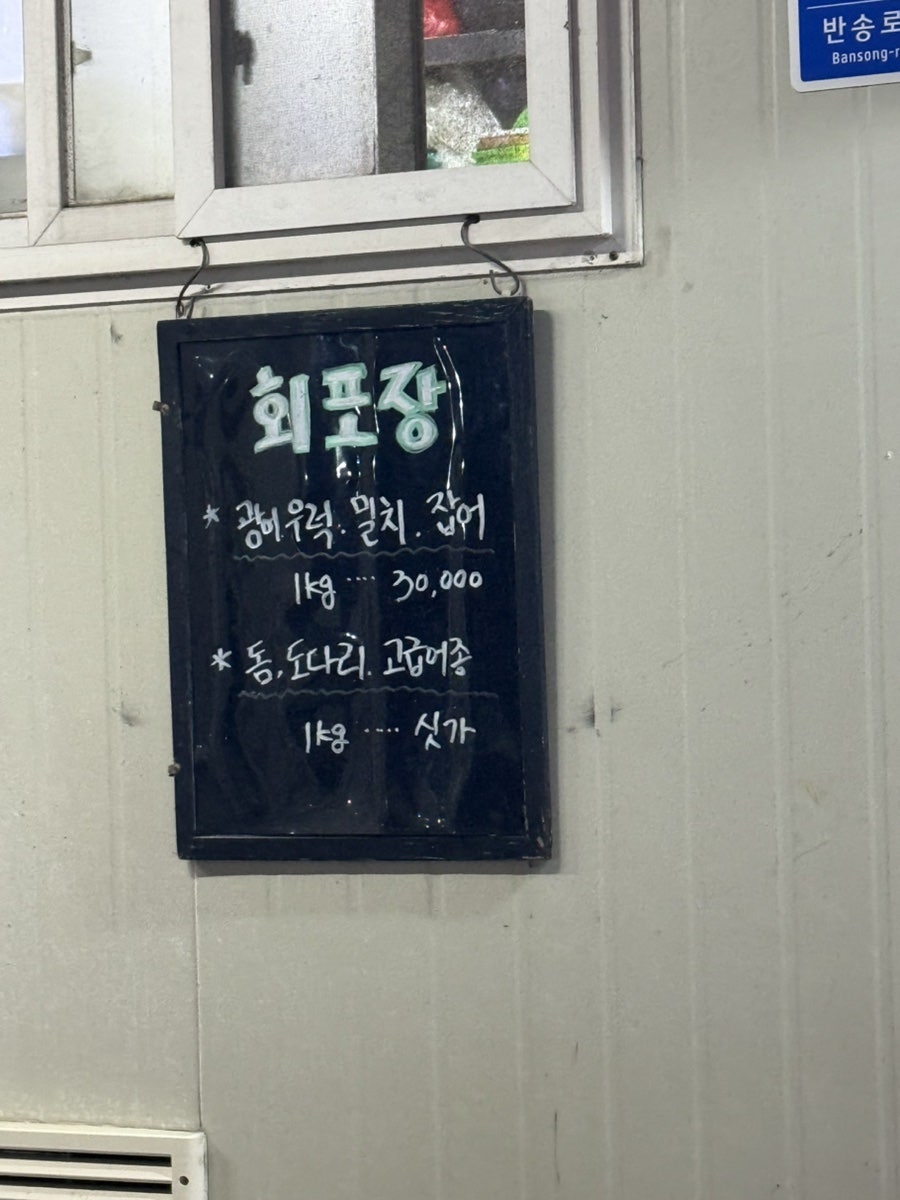 반송로
Bansong-r
회포장
* 광어.우럭.밀치.잡어
1kg .... 30,000
* 돔.도다리.고급어종
1kg .... 싯가